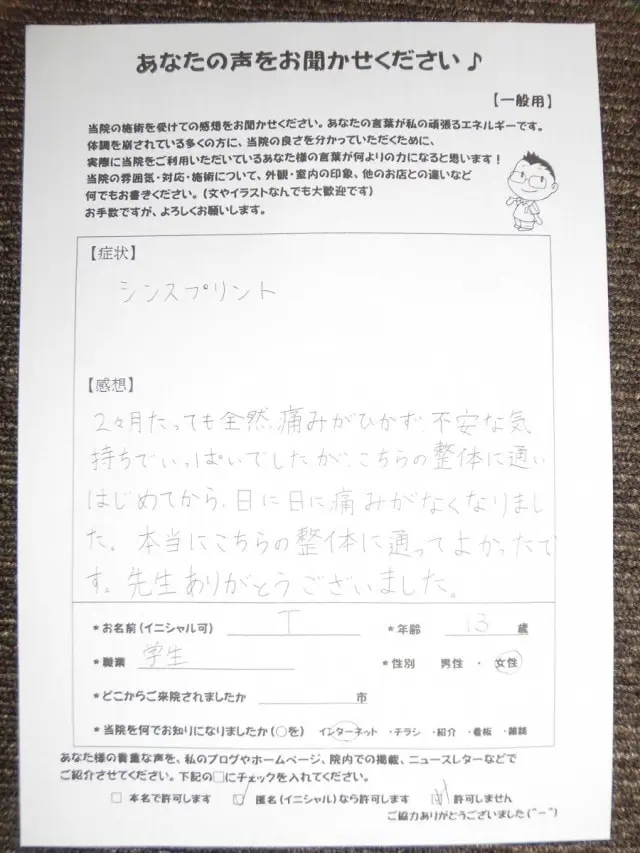 あなたの声をお聞かせください♪
【一般用】
当院の施術を受けての感想をお聞かせください。あなたの言葉が私の頑張るエネルギーです。
体調を崩されている多くの方に、当院の良さを分かっていただくために、
実際に当院をご利用いただいているあなた様の言葉が何よりの力になると思います！
当院の雰囲気・対応・施術について、外観・室内の印象、他のお店との違いなど
何でもお書きください。(文やイラストなんでも大歓迎です)
お手数ですが、よろしくお願いします。
【症状】
シンスプリント
【感想】
2々月たっても全然、痛みがひかず、不安な気
持ちでいっぱいでしたが、こちらの整体に通い
はじめてから、日に日に痛みがなくなりまし
た。本当にこちらの整体に通ってよかったで
す。先生ありがとうございました。
*お名前(イニシャル可) T *年齢 13 歳
*職業 学生 *性別 男性・女性
*どこからご来院されましたか 市
*当院を何でお知りになりましたか(○を) インターネット・チラシ・紹介・看板・雑誌
あなた様の貴重な声を、私のブログやホームページ、院内での掲載、ニュースレターなどで
ご紹介させてください。下記の□にチェックを入れてください。
□ 本名で許可します □ 匿名(イニシャル)なら許可します □ 許可しません
ご協力ありがとうございました(^-^)